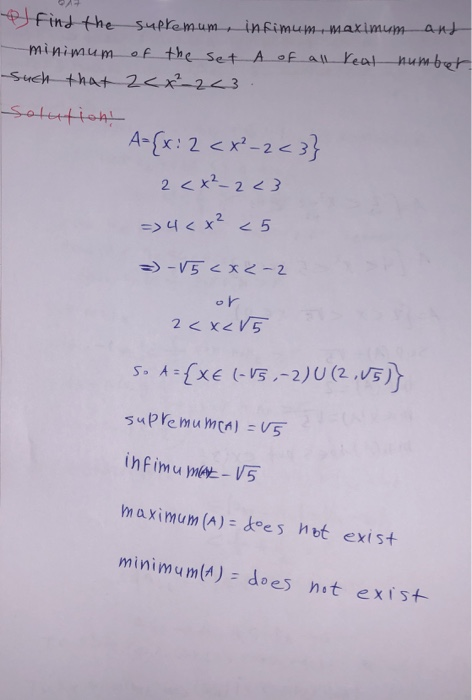 Q) Find the supremum, infimum, maximum and
minimum of the set A of all real number
such that 2 < x² - 2 < 3
Solution:
A = {x : 2 < x² - 2 < 3}
2 < x² - 2 < 3
=> 4 < x² < 5
=> -√5 < x < -2
or
2 < x < √5
So A = {x ∈ (-√5, -2) U (2, √5)}
supremum(A) = √5
infimum = -√5
maximum(A) = does not exist
minimum(A) = does not exist